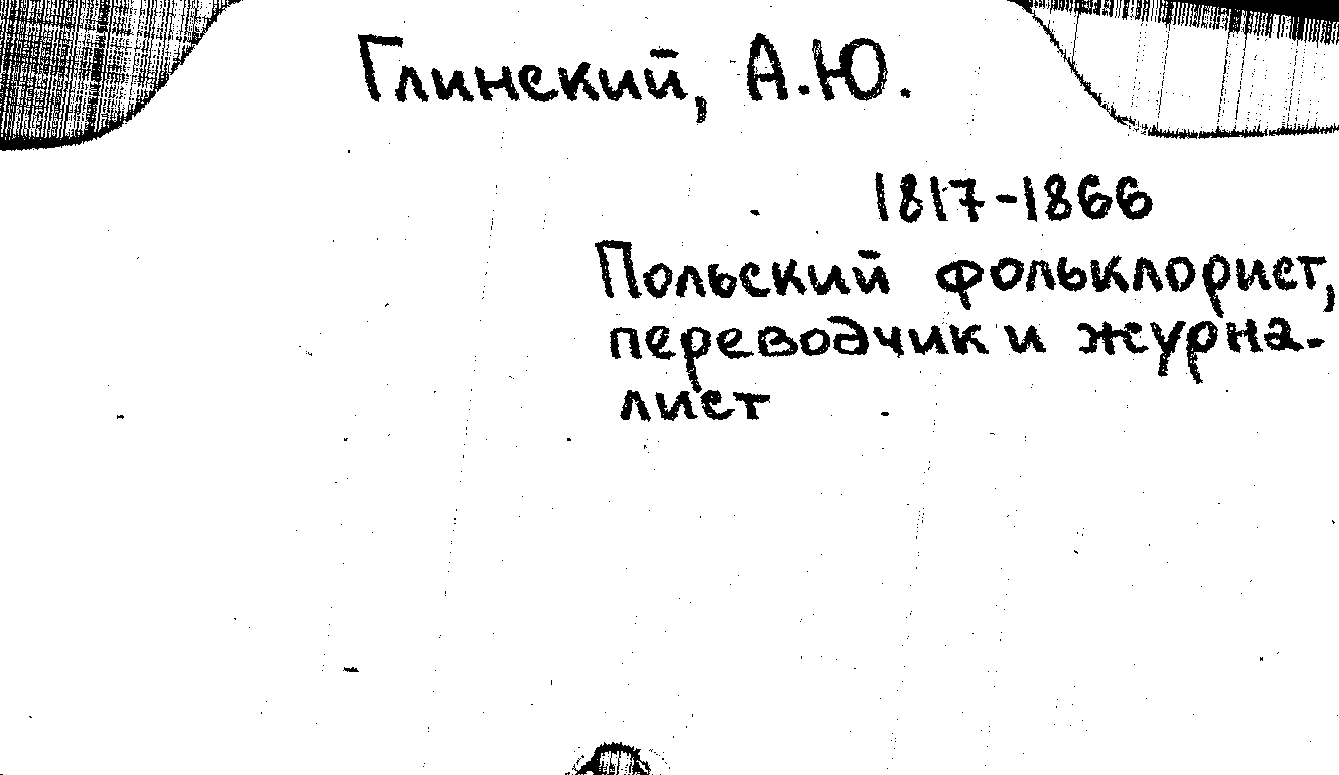 Глинский, А.Ю.
1817-1866
Польский фольклорист,
переводчик и журна-
лист